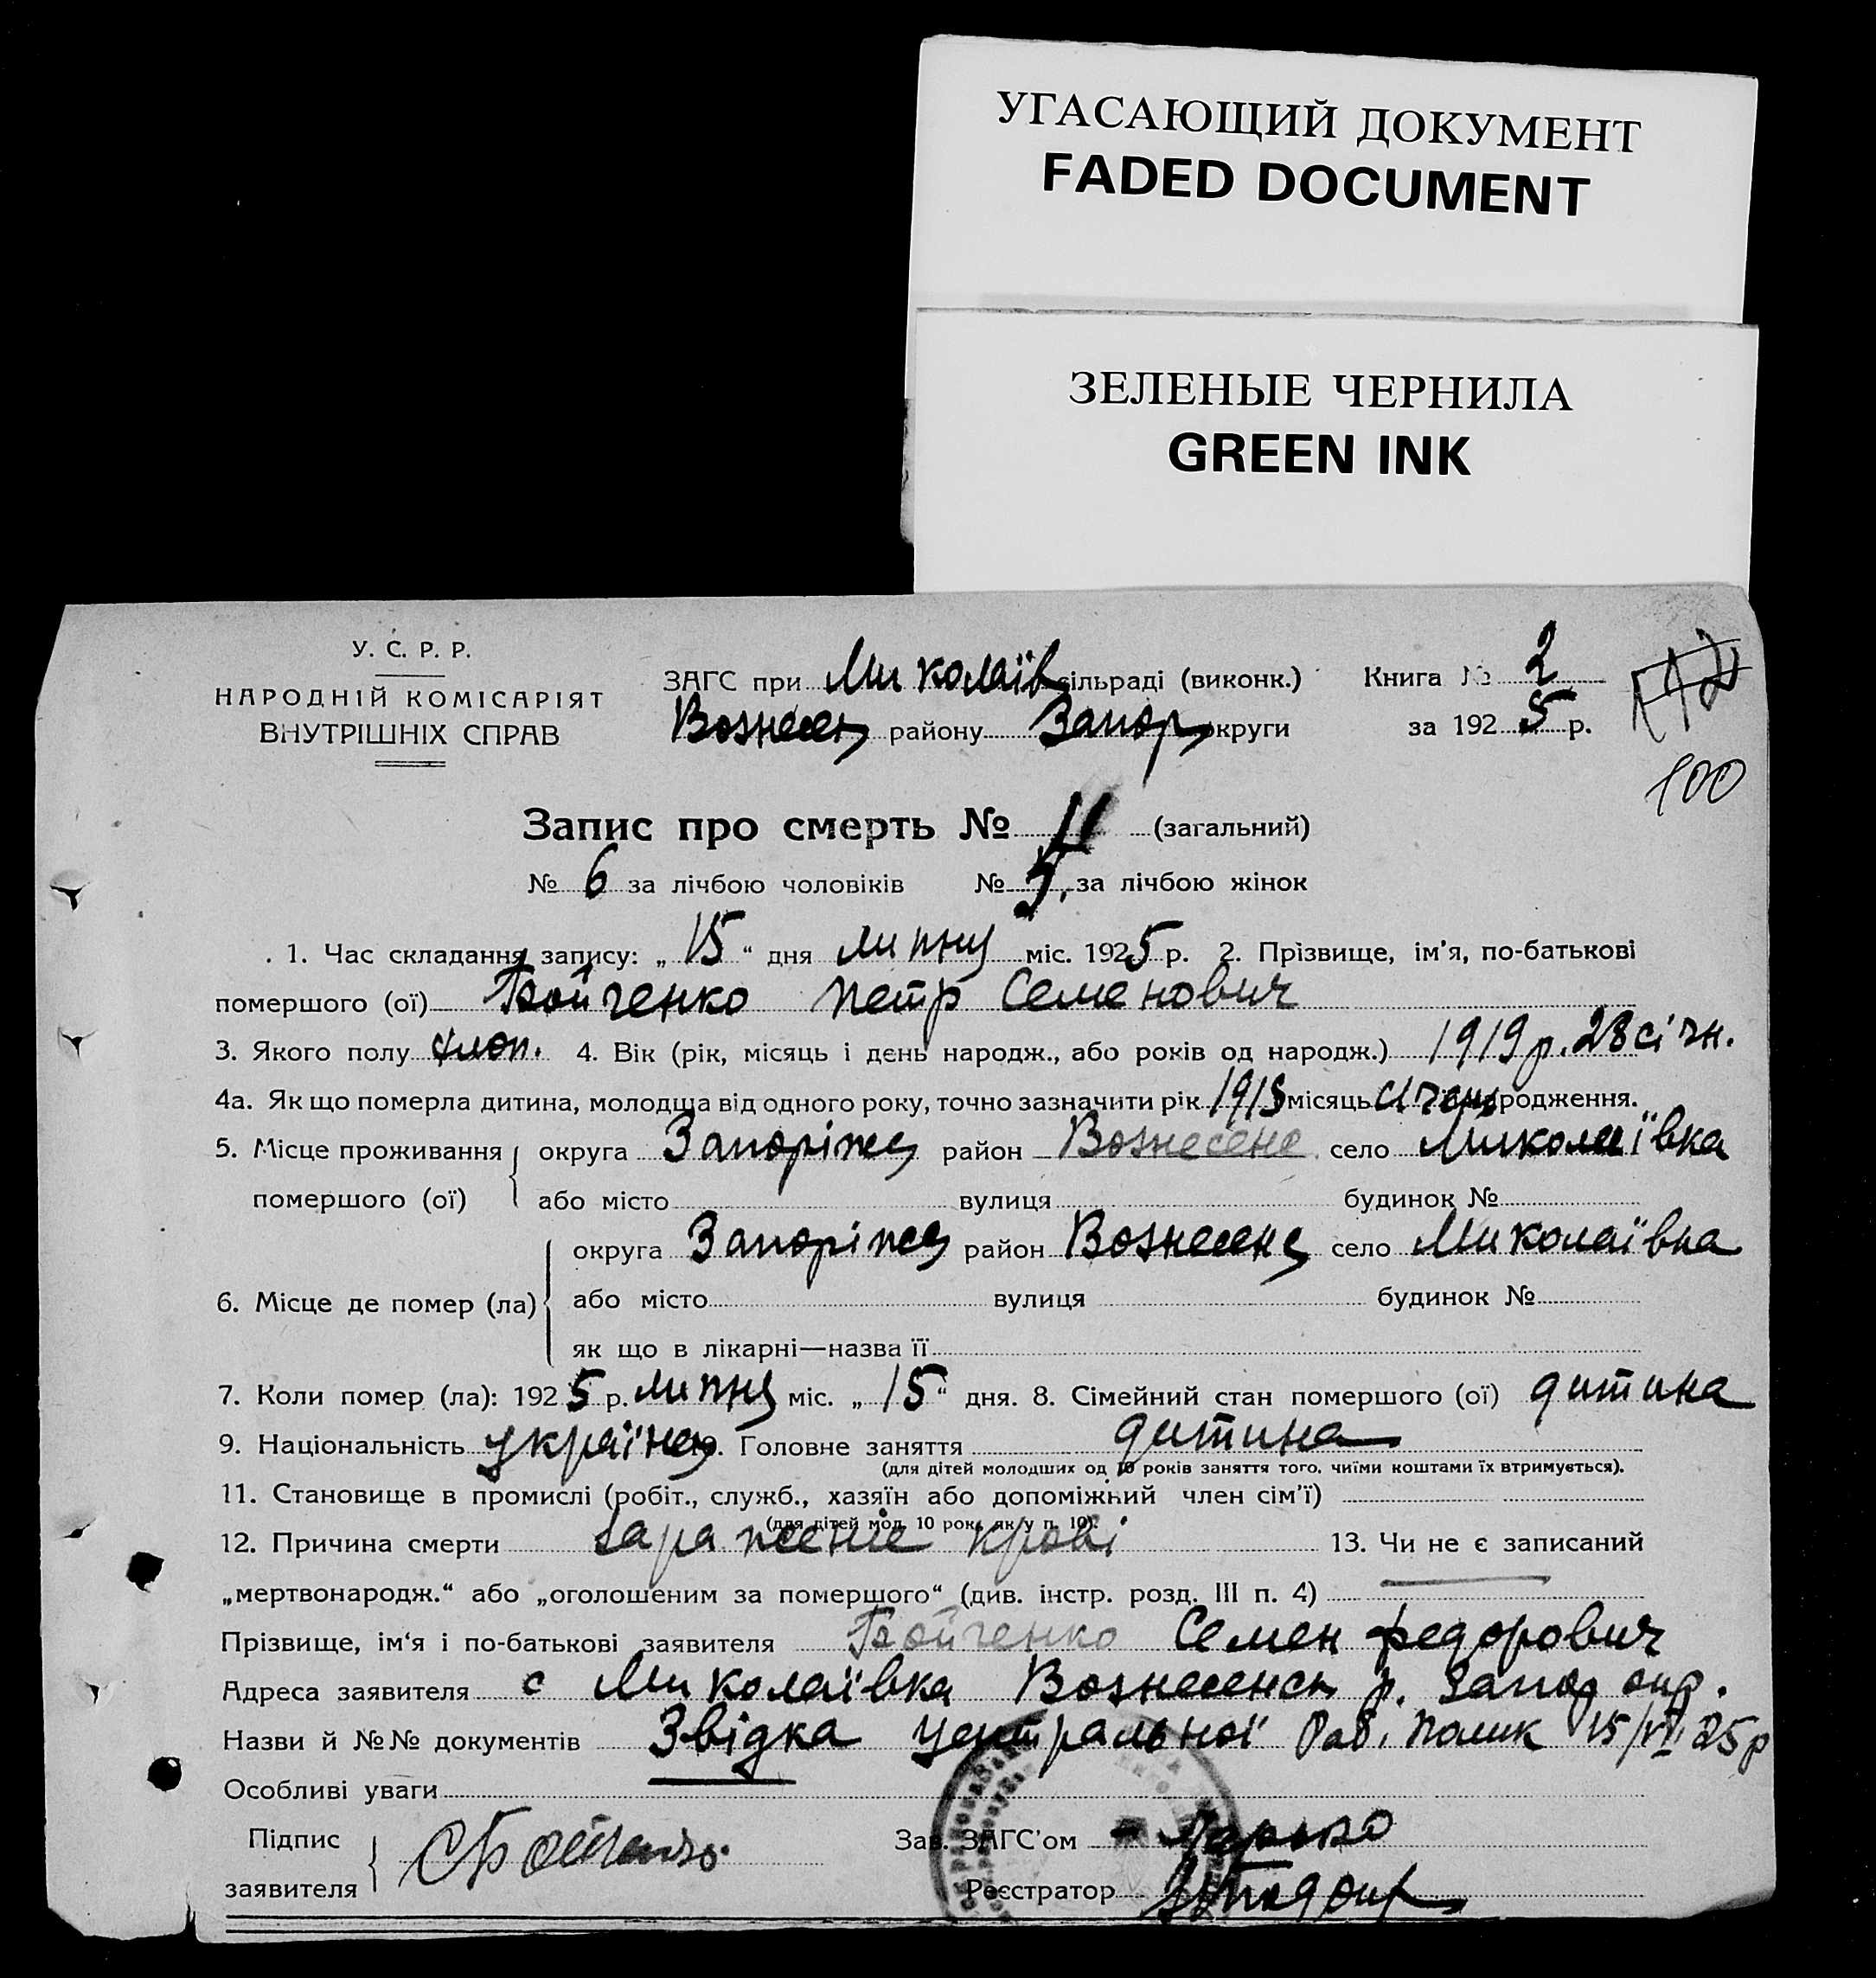 УГАСАЮЩИЙ ДОКУМЕНТ
FADED DOCUMENT
ЗЕЛЕНЫЕ ЧЕРНИЛА
GREEN INK
У. С. Р. Р.
НАРОДНІЙ КОМІСАРІЯТ
ВНУТРІШНІХ СПРАВ
ЗАГС при Миколаїв сільраді (виконк.) Книга № 2
Вознесен району Запор округи за 1925 р.
100
Запис про смерть № 11 (загальний)
№ 6 за лічбою чоловіків № 5. за лічбою жінок
1. Час складання запису: „15“ дня липня міс. 1925 р. 2. Прізвище, ім'я, по-батькові
помершого (ої) Бойченко Петр Семенович
3. Якого полу хлоп. 4. Вік (рік, місяць і день народж., або років од народж.) 1919 р. 28 січн.
4а. Як що померла дитина, молодща від одного року, точно зазначити рік 1919 місяць січень народження.
5. Місце проживання округа Запоріж район Вознесенс село Миколаївка
помершого (ої) або місто вулиця будинок №
округа Запоріж район Вознесенс село Миколаївка
6. Місце де помер (ла) або місто вулиця будинок №
як що в лікарні—назва її
7. Коли помер (ла): 1925 р. липня міс. „15“ дня. 8. Сімейний стан помершого (ої) дитина
9. Національність україн 10. Головне заняття дитина
(для дітей молодших од 10 років заняття того, чиїми коштами їх втримується).
11. Становище в промислі (робіт., служб., хазяїн або допоміжний член сім'ї)
(для дітей мол. 10 рок. як у п. 10).
12. Причина смерти зараженіе крові 13. Чи не є записаний
„мертвонародж.“ або „оголошеним за помершого“ (див. інстр. розд. III п. 4)
Прізвище, ім'я і по-батькові заявителя Бойченко Семен Федорович
Адреса заявителя с Миколаївка Вознесенск р. Запор окр.
Назви й №№ документів Звідка центральної Раб. Полик 15/VII 25 р
Особливі уваги
Підпис Зав. ЗАГС'ом
заявителя СБойченко Реєстратор